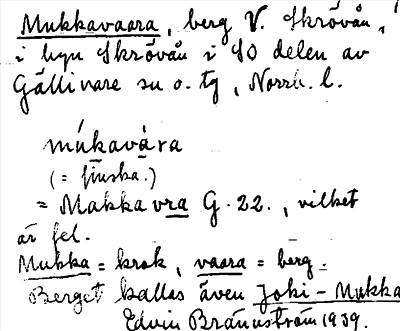 Mukkavaara, berg V. Skröván,
i byn Skröván i SO delen av
Gällivare sn o. tg, Norrb. l.
múkavára
(= finska.)
= Makkavra G. 22., vilket
är fel.
Mukka = krok, vaara = berg.
Berget kallas även Joki-Mukka
Edvin Brännström 1939.